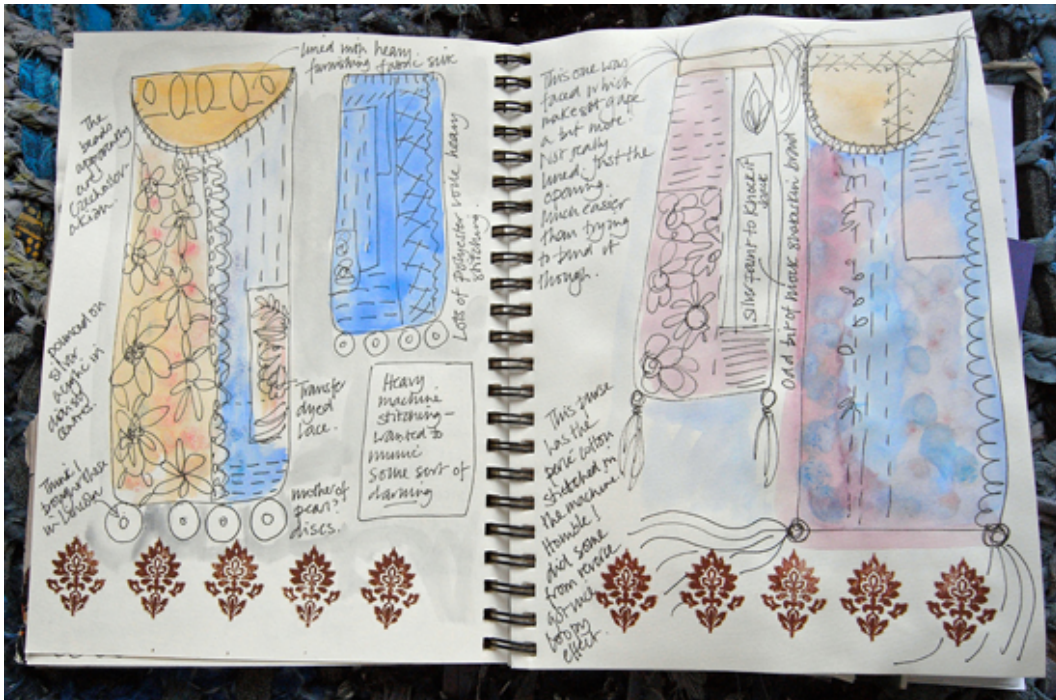 lined with heavy
furnishing fabric silk
The
beads
apparently
are
Czechoslov-
akian.
pounced on
silver
acrylic in
daisy
centres.
Think I
bought these
in London
Transfer
dyed
lace.
mother of
pearl
discs.
Lots of polyester voile heavy
stitching.
Heavy
machine
stitching -
wanted to
mimic
some sort of
darning
This one was
faced which
makes it gape
a bit more.
Not really
lined, just the
opening.
Much easier
than trying
to bind it
though.
silver paint to knock it
back
odd bit of mock shisha braid
This purse
was the
perlé cotton
stitched on
the machine.
Horrible!
did some
from reverse
got nice
loopy
effect.